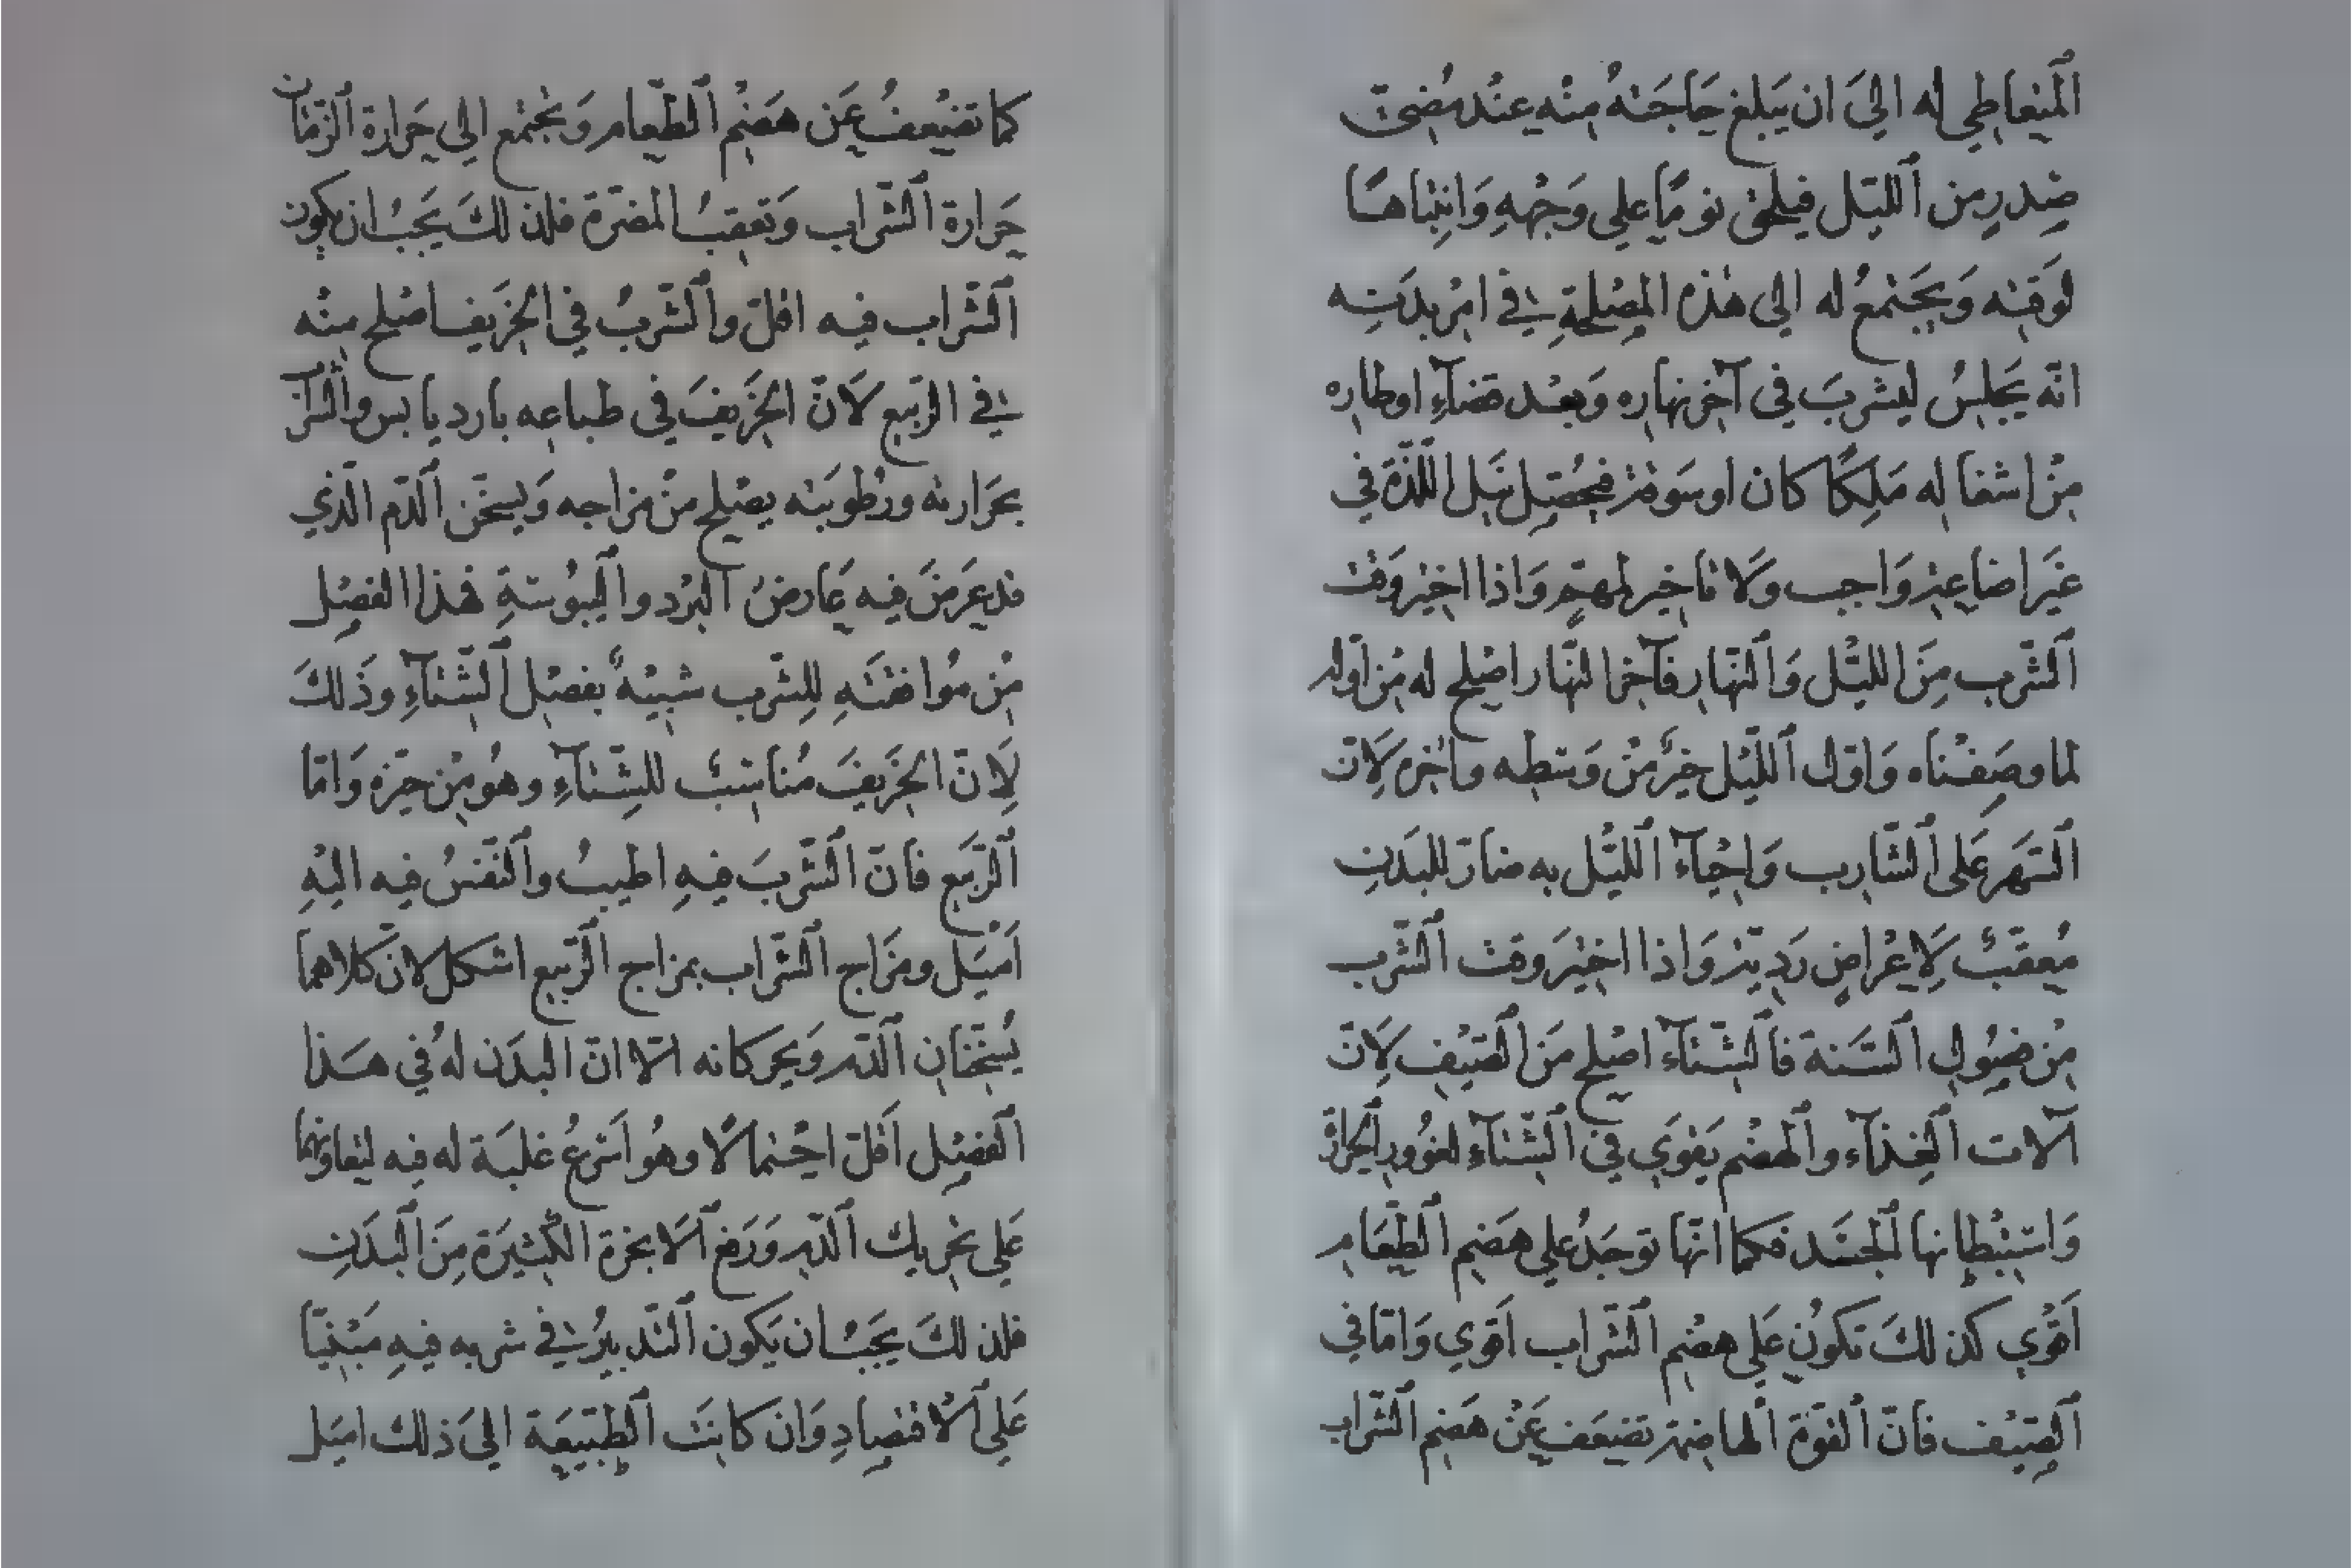 المتعاطي له الىَ ان يَبلغ حَاجَتهُ مِنْه عِنْد مُضىّ
صَدرٍ مِن ٱلليّل فيلحق نومًا علي وَجْههِ وَانتِباهًا
لوَقتِه وَيَجتمعُ له الى هٰذه المصْلحةِ في امْر بدَنِه
انّه يَجلسُ ليشربَ في آخر نهاره وَبعْد قضآءِ اوطاره
مِنْ اشغاله مَلِكًا كان او سَوقة فيحصّل نيل اللّذّة في
غيَر اضاعة وَاجب وَلا تاخير لمهمّ وَاذا اختير وَقت
ٱلشّرب مِنَ الليّل وَٱلنّهار فآخر النّهار اصْلح له مِن اوّله
لما وصَفْناه وَاوّل ٱللّيْل خيرٌ مِنْ وَسَطه واٰخره لِاَنّ
ٱلسّهَر عَلى ٱلشّارب وَاحْيآءَ ٱلليّل به ضارّ للبدَنِ
مُعقبٌ لِاَعْراضٍ رَديّة وَاذا اختيرَ وقت ٱلشّرب
مِنْ فصُولِ ٱلسَّنة فٱلشّتآء اصْلح مَن ٱلصّيْف لِاَنّ
آلات ٱلغِذآء وٱلهضْم يَقوَي في ٱلشّتآءِ لغوُور ٱلحرارة
وَاسْتبْطانها ٱلجسَد فكما انّها توجَدُ علي هضَم ٱلطّعَام
اَقوَي كذلكَ تكونُ عَلى هضْم ٱلشّراب اَقوَي وَامّا في
ٱلصّيْف فانّ ٱلقوّة ٱلهاضِمة تضعَف عَنْ هضَم ٱلشّراب
كما تضْعفُ عَن هضْم ٱلطّعام وَيجْتمع الي حَرارة ٱلزّمان
حَرارة ٱلشّراب وَتعقبُ المضرّة فلذلكَ يَجبُ ان يكون
ٱلشّراب فيه اقلّ وٱلشّربُ في الخرَيف اصْلح مِنْه
في الرّبيع لَانّ الخَريفَ في طباعه بارد يابس وٱلشّراب
بحَرارته ورُطوبَته يصْلح مِنْ مزاجه وَيسخّن ٱلدّم الّذي
قد عَرضَ فيه عَارضُ ٱلبرْد وٱليبُوسَةِ فهٰذا الفصْل
مِنْ مُوافقتَهِ لِلشّرب شبيْهٌ بفصْل ٱلشّتآءِ وذَلكَ
لِاَنّ الخَريفَ مُناسبٌ للشّتآءِ وهُو مِنْ حيّزه وَامّا
ٱلرّبَيع فانّ ٱلشّربَ فيهِ اطيبُ وٱلنّفسُ فيه اليْهِ
اَمْيَل ومزَاج ٱلشّراب بمزاج ٱلرّبيع اشكل لانّ كلاهما
يُسخّنان ٱلدّم وَيحركانه الّا انّ البدَن لهُ في هـذا
ٱلفصْل اَقلّ احْتمالًا وهُو اَسَرعُ غلبَة له فيه لتعاونهما
عَلي تحْريك ٱلدّم وَرَفع ٱلَابخرة الكثيرَة مِنَ ٱلبدَنِ
فلذلكَ يَجبُ ان يَكون ٱلتّدبيرُ في شربه فيهِ مَبْنيّا
عَلي ٱلاقتصادِ وَان كانتَ ٱلطّبيعَة الىَ ذلك اميَل